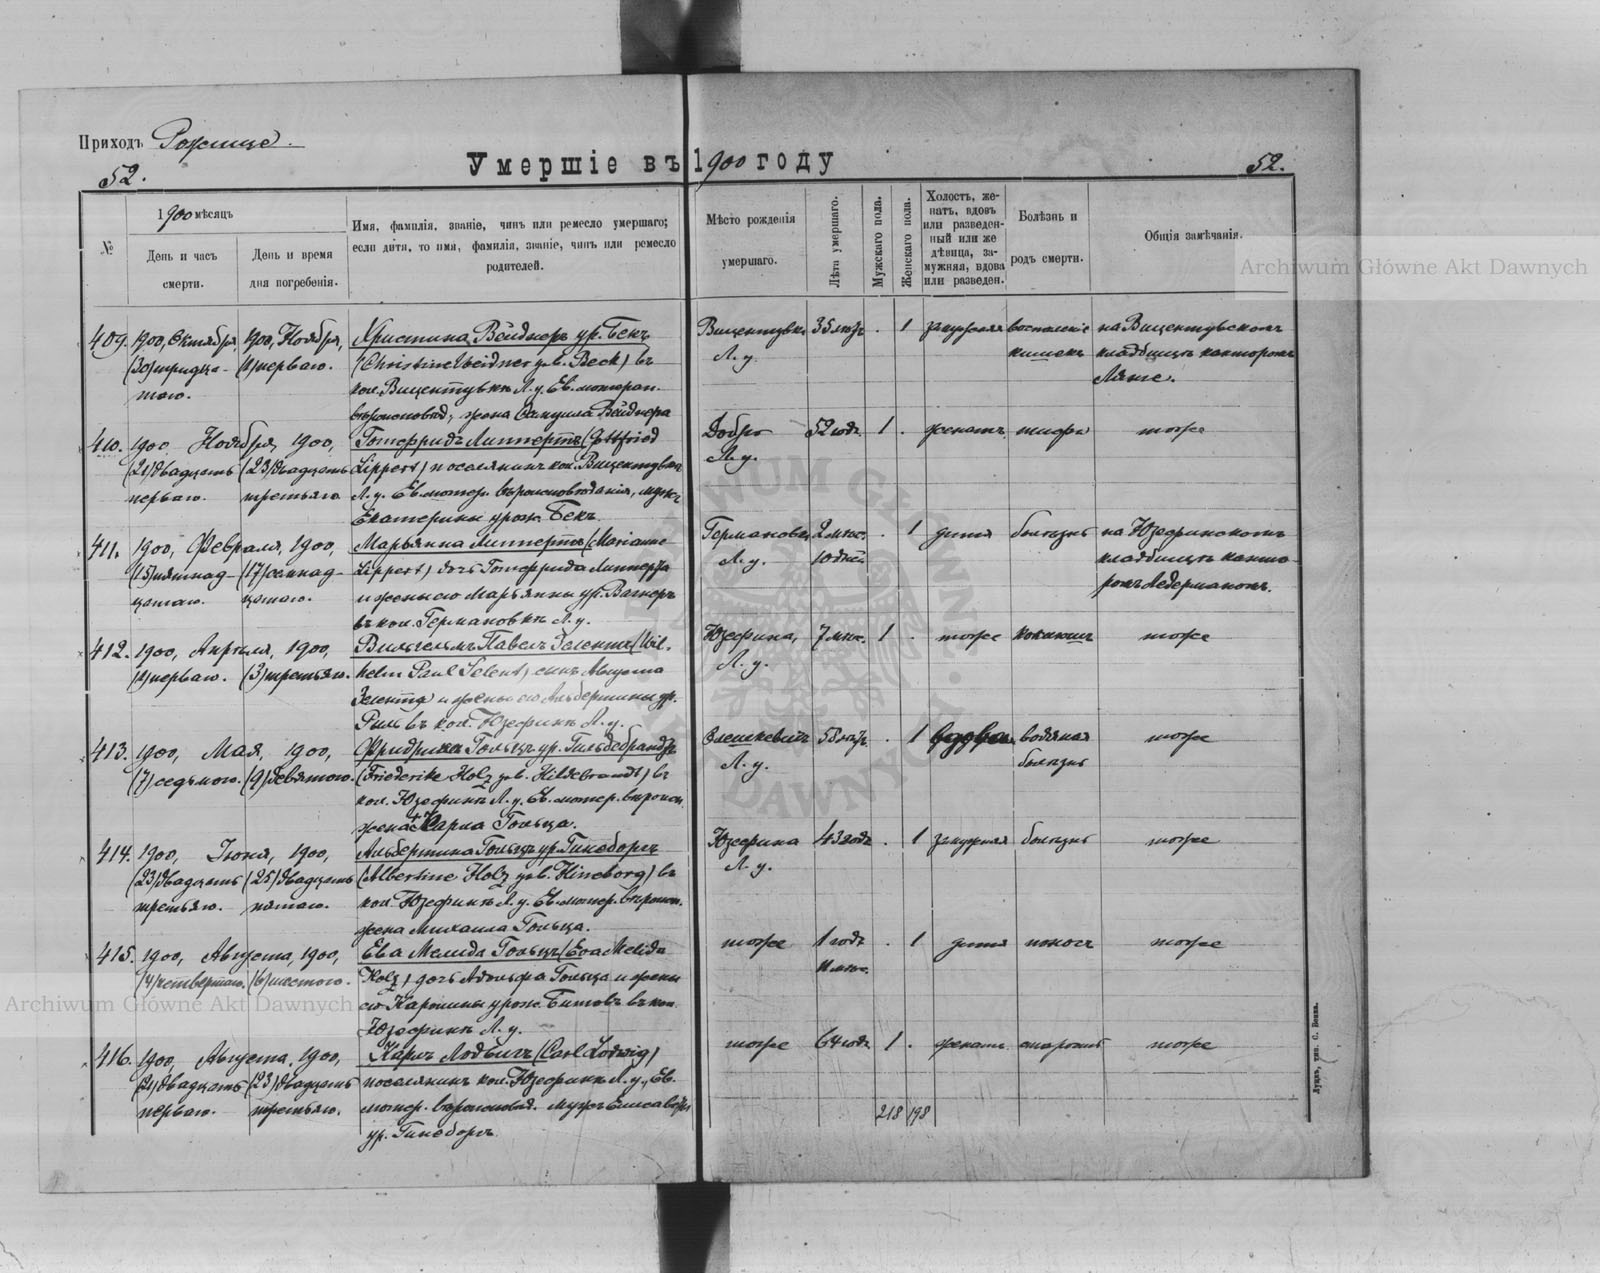 Приходъ Рожище.
52.
Умершіе въ 1900 году
52.
№
1900 мѣсяцъ
День и часъ смерти.
День и время дня погребенія.
Имя, фамилія, званіе, чинъ или ремесло умершаго;
если дитя, то имя, фамилія, званіе, чинъ или ремесло
родителей.
Мѣсто рожденія
умершаго.
Лѣта умершаго.
Мужскаго пола.
Женскаго пола.
Холостъ, же-
натъ, вдовъ
или разведен-
ный или же
дѣвица, за-
мужняя, вдова
или разведен.
Болѣзнь и
родъ смерти.
Общія замѣчанія.
Archiwum Główne Akt Dawnych
409. 1900, Октября, 1900, Ноября, Христина Вейднеръ ур. Бекъ Вицентувка 35 лѣтъ . 1 замужняя воспаленіе на Вицентувскомъ
(30) тридца- (1) перваго. (Christine Weidner geb. Beck) въ Л. у. кишекъ кладбищѣ канторомъ
таго. кол. Вицентувкѣ Л. у. Ев. лютеран. Ляже.
вѣроисповѣд., жена Самуила Вейднера
410. 1900, Ноября, 1900, Готфридъ Липпертъ (Gottfried Добро 52 года 1 . женатъ тифъ тоже
(21) двадцать (23) двадцать Lippert) поселянинъ кол. Вицентувки Л. у.
перваго. третьяго. Л. у. Ев. лютер. вѣроисповѣданія, мужъ
Екатерины урож. Бекъ.
411. 1900, Февраля, 1900, Марьянна Липпертъ (Marianne Германовка 2 мѣс. . 1 дитя болѣзнь на Юзефинскомъ
(15) пятнад- (17) семнад- Lippert) дочь Готфрида Липперта Л. у. 10 дней кладбищѣ канто-
цатаго. цатаго. и жены его Марьянны ур. Вагнеръ ромъ Ледерманомъ.
въ кол. Германовкѣ Л. у.
412. 1900, Апрѣля, 1900, Вильгельмъ Павелъ Зелентъ (Wil- Юзефина, 7 мѣс. 1 . тоже коклюшъ тоже
(1) перваго. (3) третьяго. helm Paul Selent) сынъ Августа Л. у.
Зелента и жены его Альбертины ур.
въ кол. Юзефинѣ Л. у.
413. 1900, Мая, 1900, Фридрика Гольцъ ур. Гильдебрандтъ Олешкевичъ 58 лѣтъ . 1 вдова водяная тоже
(7) седьмого. (9) девятаго. (Friederike Holz geb. Hildebrandt) въ Л. у. болѣзнь
кол. Юзефинѣ Л. у. Ев. лютер. вѣроисп.
жена + Карла Гольца.
414. 1900, Іюня, 1900, Альбертина Гольцъ ур. Гинеборгъ Юзефина 43 года . 1 замужняя болѣзнь тоже
(23) двадцать (25) двадцать (Albertine Holz geb. Hineborg) въ Л. у.
третьяго. пятаго. кол. Юзефинѣ Л. у. Ев. лютер. вѣроисп.
жена Михаила Гольца.
415. 1900, Августа, 1900, Ева Мелида Гольцъ (Eva Melida тоже 1 годъ . 1 дитя поносъ тоже
(4) четвертаго. (6) шестого. Holz) дочь Адольфа Гольца и жены мѣс.
его Каролины урож. въ кол.
Юзефинѣ Л. у.
Archiwum Główne Akt Dawnych
416. 1900, Августа, 1900, Карлъ Лодвигъ (Carl Lodwig) тоже 64 года 1 . женатъ старость тоже
(21) двадцать (23) двадцать поселянинъ кол. Юзефинѣ Л. у., Ев.
перваго. третьяго. лютер. вѣроисповѣд. мужъ Елисаветы
ур. Гинеборгъ.
218 198
Луцкъ, тип. С. Бенка.
ARCHIWUM GŁÓWNE AKT DAWNYCH